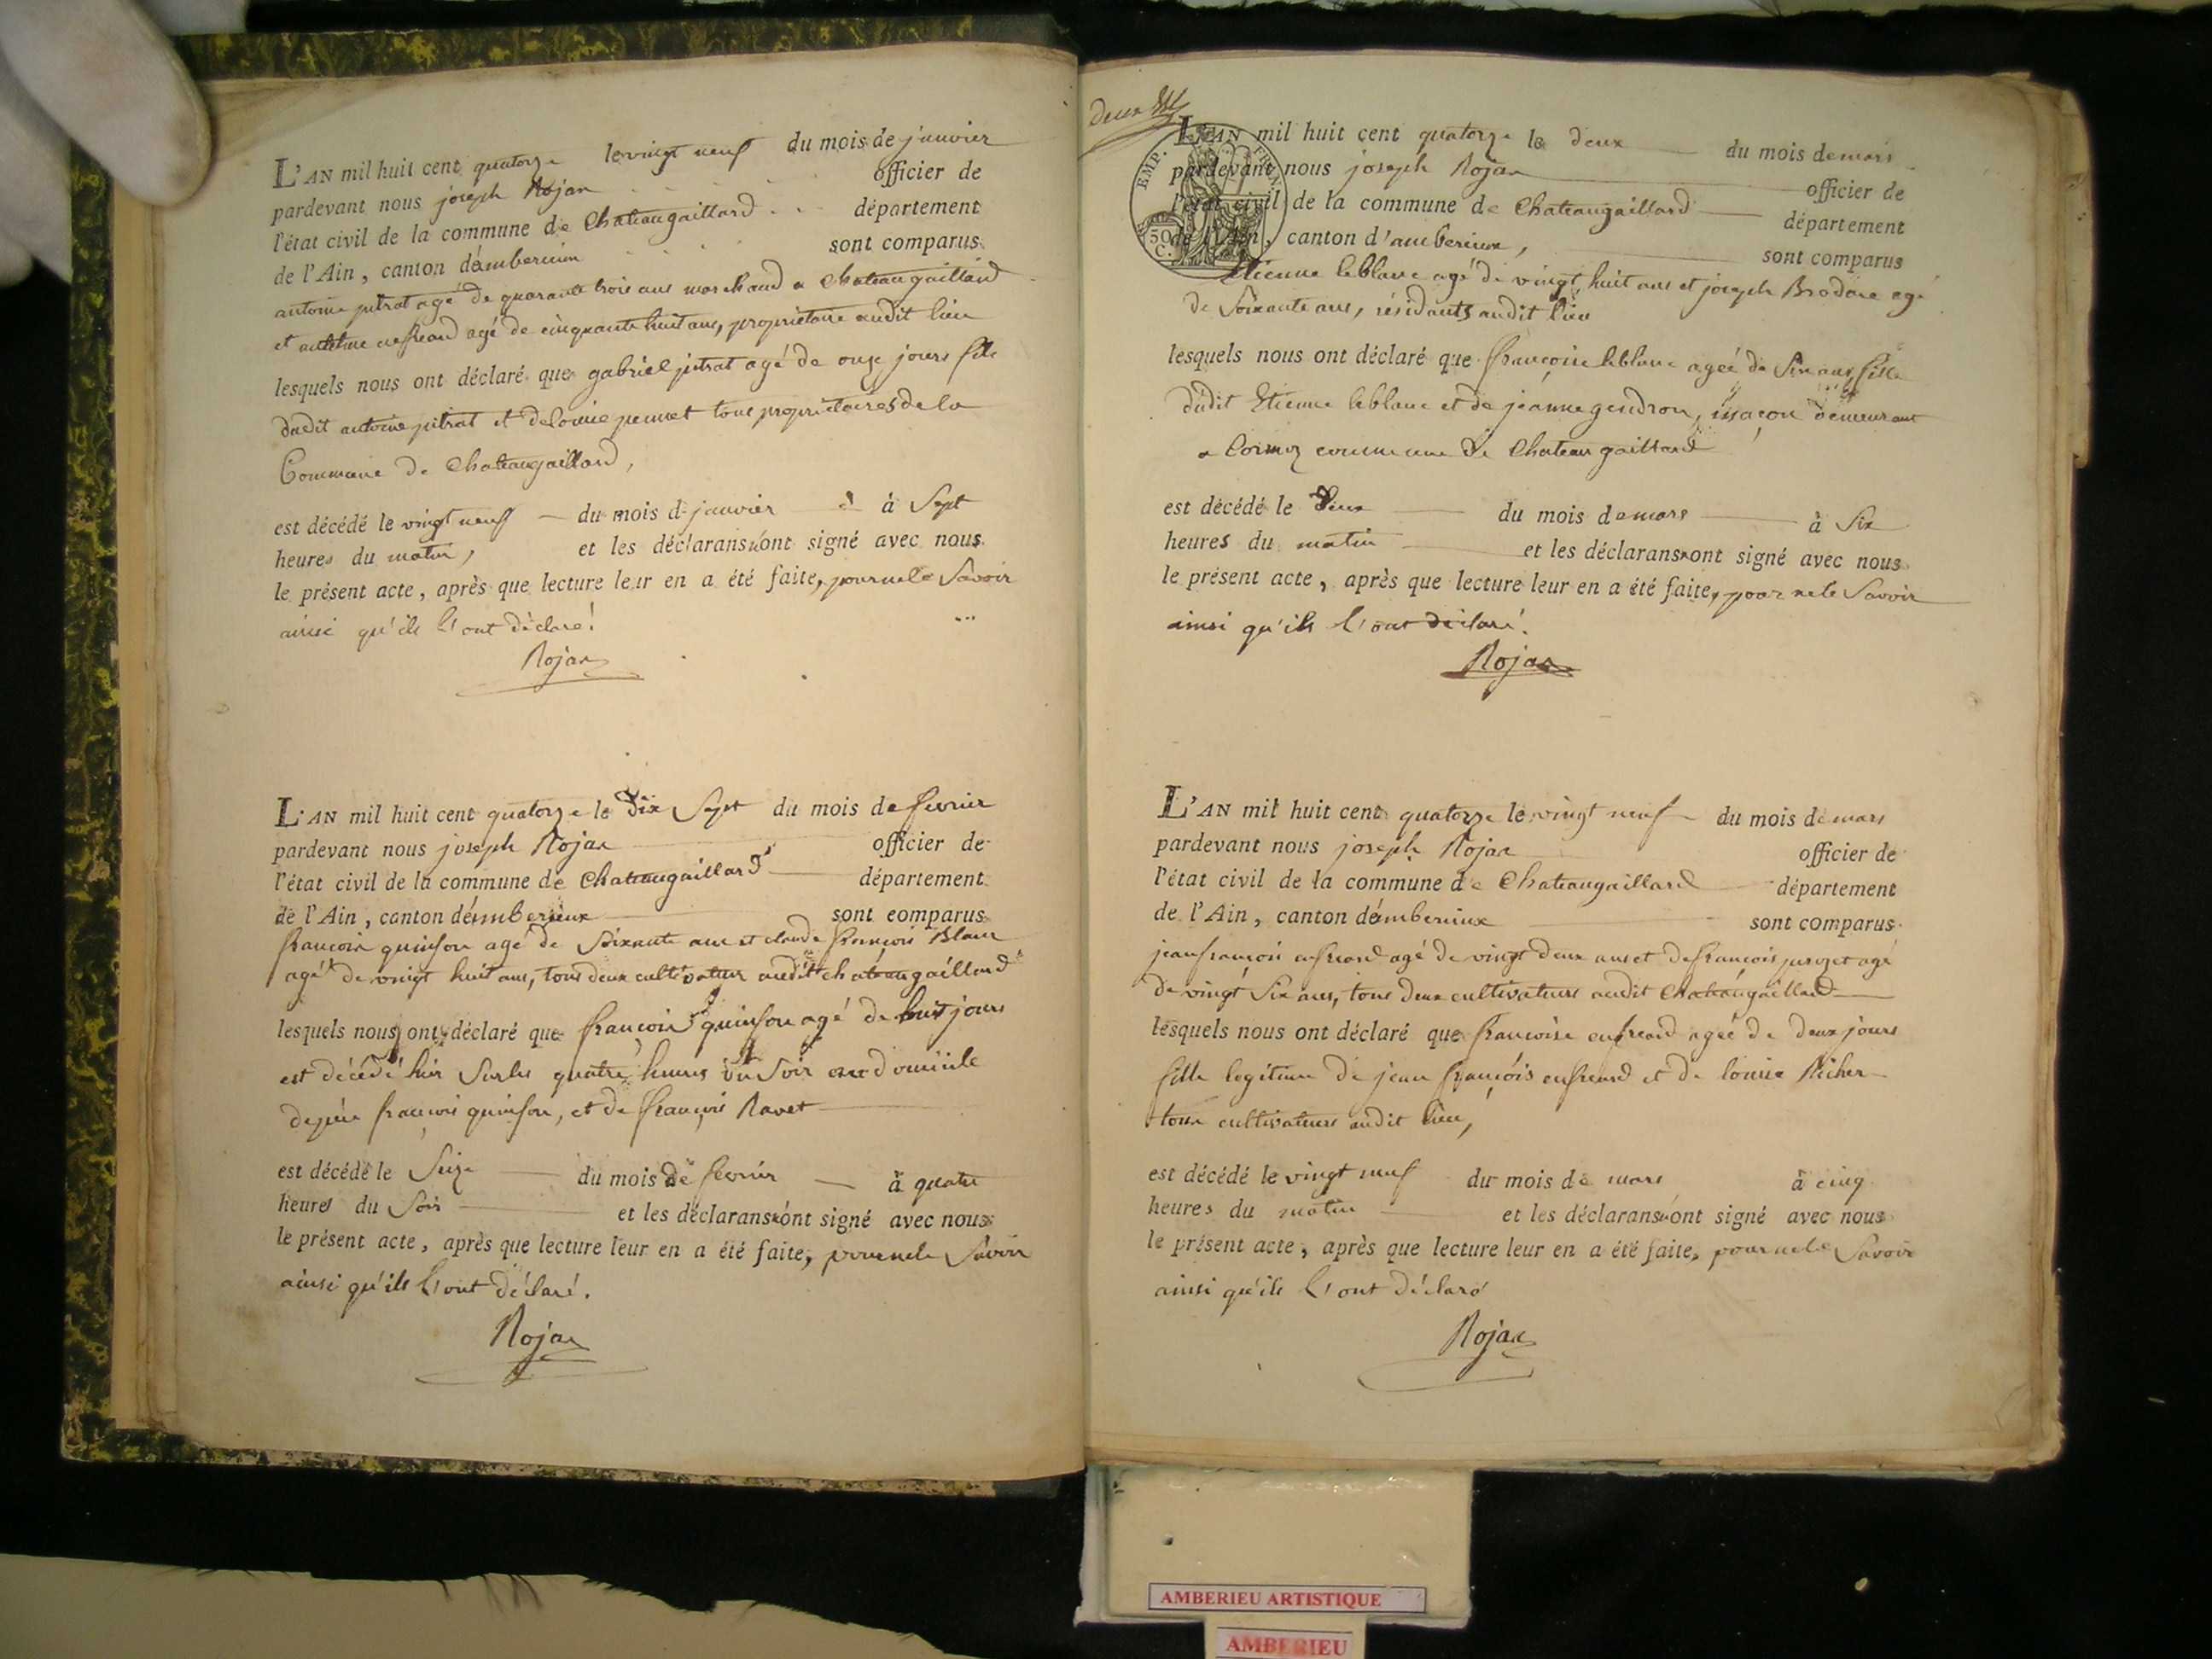 L'AN mil huit cent quatorze le vingt neuf du mois de janvier
pardevant nous joseph Rojan officier de
l'état civil de la commune de Chateaugaillard département
de l'Ain, canton d'amberieux sont comparus
antoine pitrat agé de quarante trois ans marchand a Chateaugaillard
et agé de cinquante huit ans, propriétaire audit lieu
lesquels nous ont déclaré que gabriel pitrat agé de onze jours fils
dudit antoine pitrat et de louise tous propriétaires de la
Commune de Chateaugaillard,
est décédé le vingt neuf du mois de janvier à Sept
heures du matin, et les déclarans n'ont signé avec nous
le présent acte, après que lecture leur en a été faite, pour ne le Savoir
ainsi qu'ils l'ont déclaré.
Rojan
L'AN mil huit cent quatorze le Dix Sept du mois de fevrier
pardevant nous joseph Rojan officier de
l'état civil de la commune de Chateaugaillard département
de l'Ain, canton d'amberieux sont comparus
francois quinson agé de Soixante ans et claude francois Blanc
agé de vingt huit ans, tous deux cultivateur audit chateaugaillard
lesquels nous ont déclaré que francois quinson agé de huit jours
est décédé hier Sur les quatre heures du Soir domicile
de père francois quinson, et de francoise Ravet
est décédé le Seize du mois de fevrier à quatre
heures du Soir et les déclarans n'ont signé avec nous
le présent acte, après que lecture leur en a été faite, pour ne le Savoir
ainsi qu'ils l'ont déclaré.
Rojan
deux
EMP. FRAN.
50 C.
L'AN mil huit cent quatorze le deux du mois de mars
pardevant nous joseph Rojan officier de
l'état civil de la commune de Chateaugaillard département
de l'Ain, canton d'amberieux, sont comparus
Etienne leblanc agé de vingt huit ans et joseph Brodare agé
de Soixante ans, résidants audit lieu
lesquels nous ont déclaré que francoise leblanc ageé de Six ans fille
dudit Etienne leblanc et de jeanne gendron, maçon demeurant
a Cormoz commune de Chateaugaillard
est décédé le Deux du mois de mars à Six
heures du matin et les déclarans n'ont signé avec nous
le présent acte, après que lecture leur en a été faite, pour ne le Savoir
ainsi qu'ils l'ont déclaré.
Rojan
L'AN mil huit cent quatorze le vingt neuf du mois de mars
pardevant nous joseph Rojan officier de
l'état civil de la commune de Chateaugaillard département
de l'Ain, canton d'amberieux sont comparus
jean francois enfreand agé de vingt deux ans et de francois agé
de vingt Six ans, tous deux cultivateurs audit Chateaugaillard
lesquels nous ont déclaré que francoise enfreand ageé de deux jours
fille legitime de jean francois enfreand et de louise
tous cultivateurs audit lieu,
est décédé le vingt neuf du mois de mars à cinq
heures du matin et les déclarans n'ont signé avec nous
le présent acte, après que lecture leur en a été faite, pour ne le Savoir
ainsi qu'ils l'ont déclaré
Rojan
AMBERIEU ARTISTIQUE
AMBERIEU